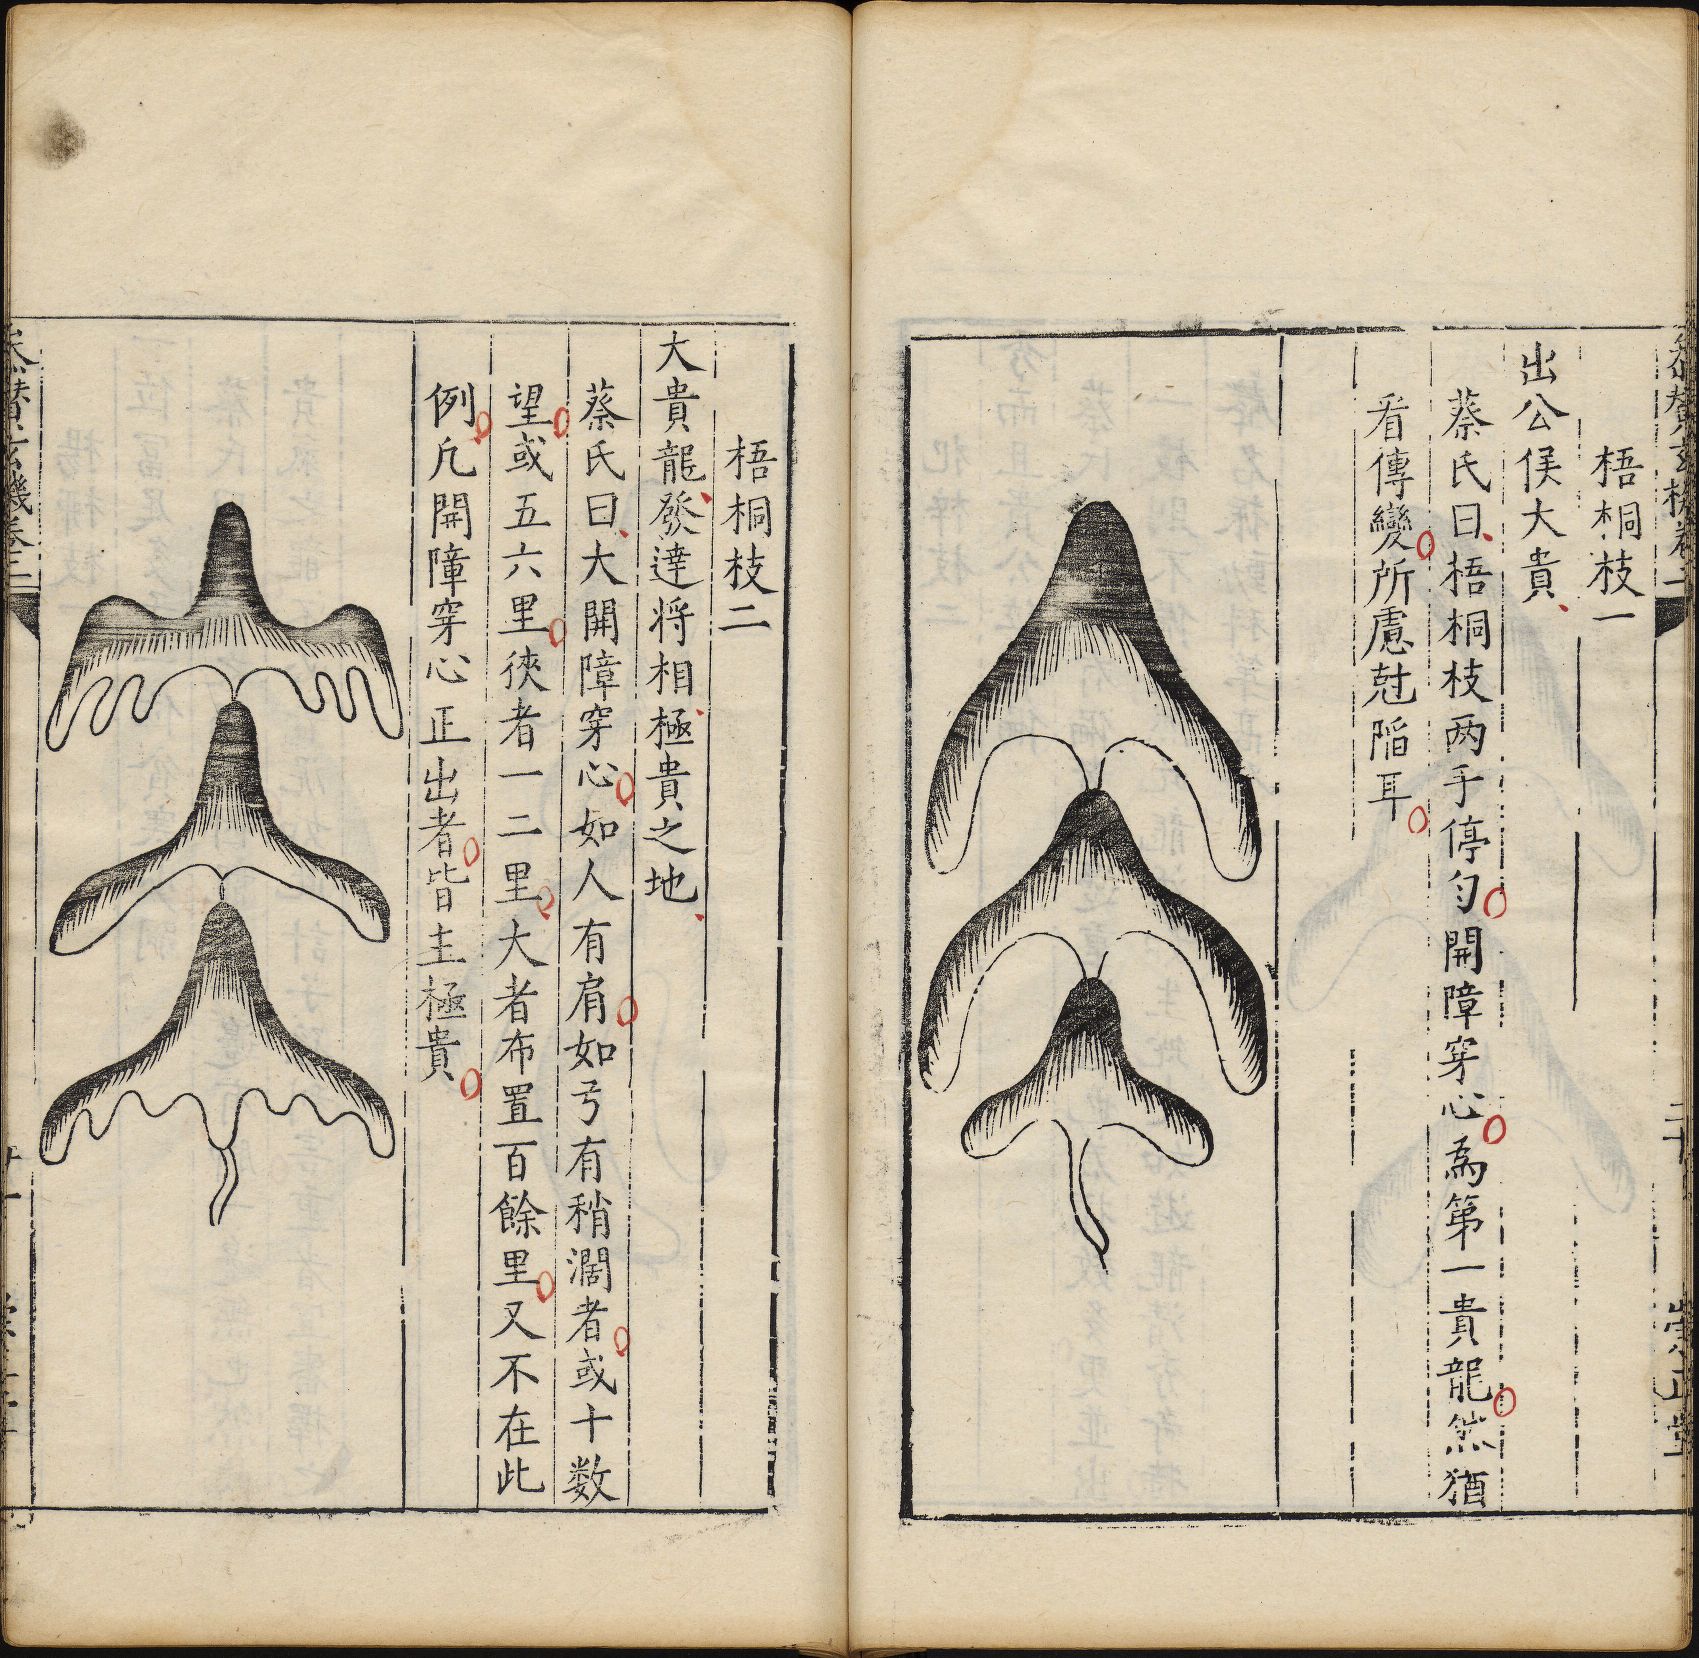 梧桐枝一
出公侯大貴
蔡氏曰梧桐枝两手停勻開障穿心為第一貴龍然猶
看傳變所慮尅陷耳
梧桐枝二
大貴龍發達将相極貴之地
蔡氏曰大開障穿心如人有肩如弓有稍濶者或十数
望或五六里狹者一二里大者布置百餘里又不在此
例凢開障穿心正出者皆主極貴